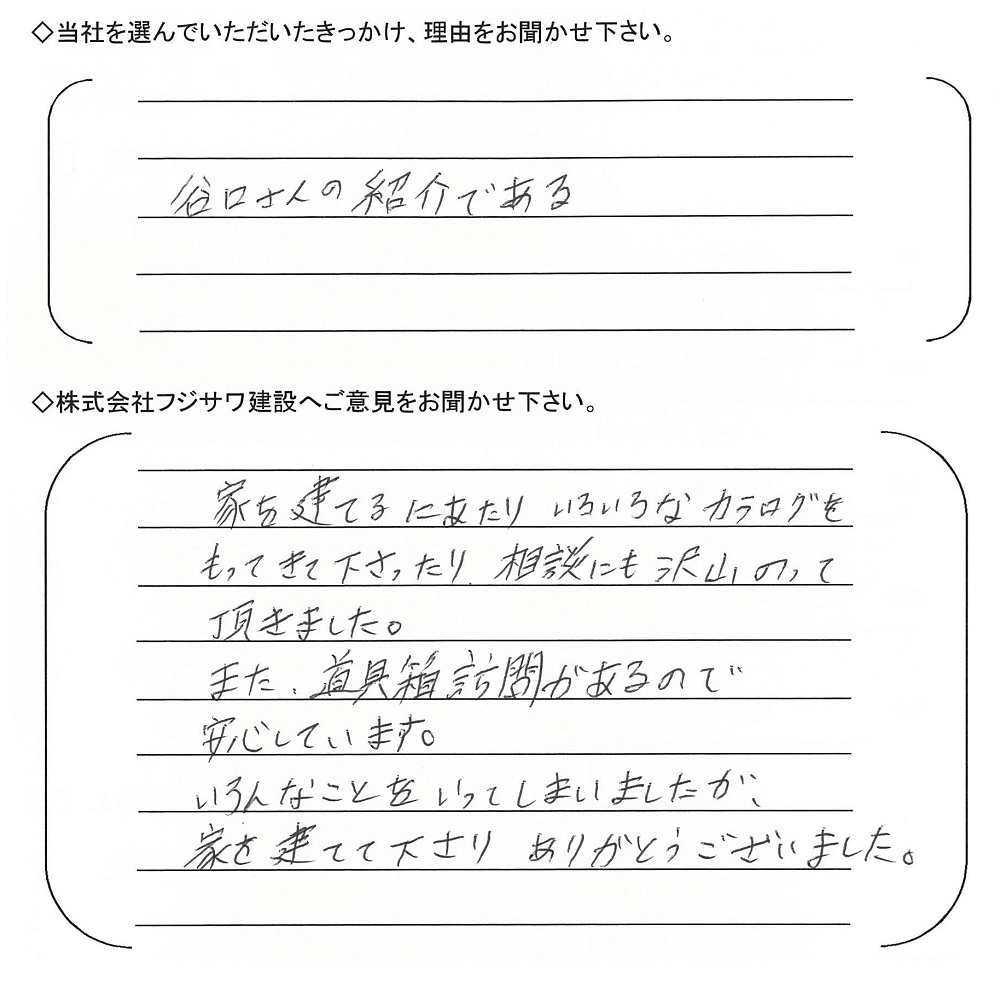 ◇当社を選んでいただいたきっかけ、理由をお聞かせ下さい。
谷口さんの紹介である
◇株式会社フジサワ建設へご意見をお聞かせ下さい。
家を建てるにあたり いろいろなカタログを
もってきて下さったり、相談にも沢山のって
頂きました。
また、道具箱訪問があるので
安心しています。
いろんなことをいってしまいましたが、
家を建てて下さり ありがとうございました。